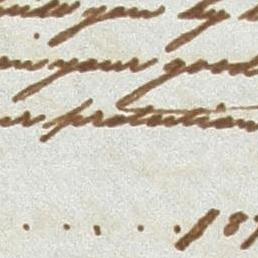 you by
your good
r protection
..... 187